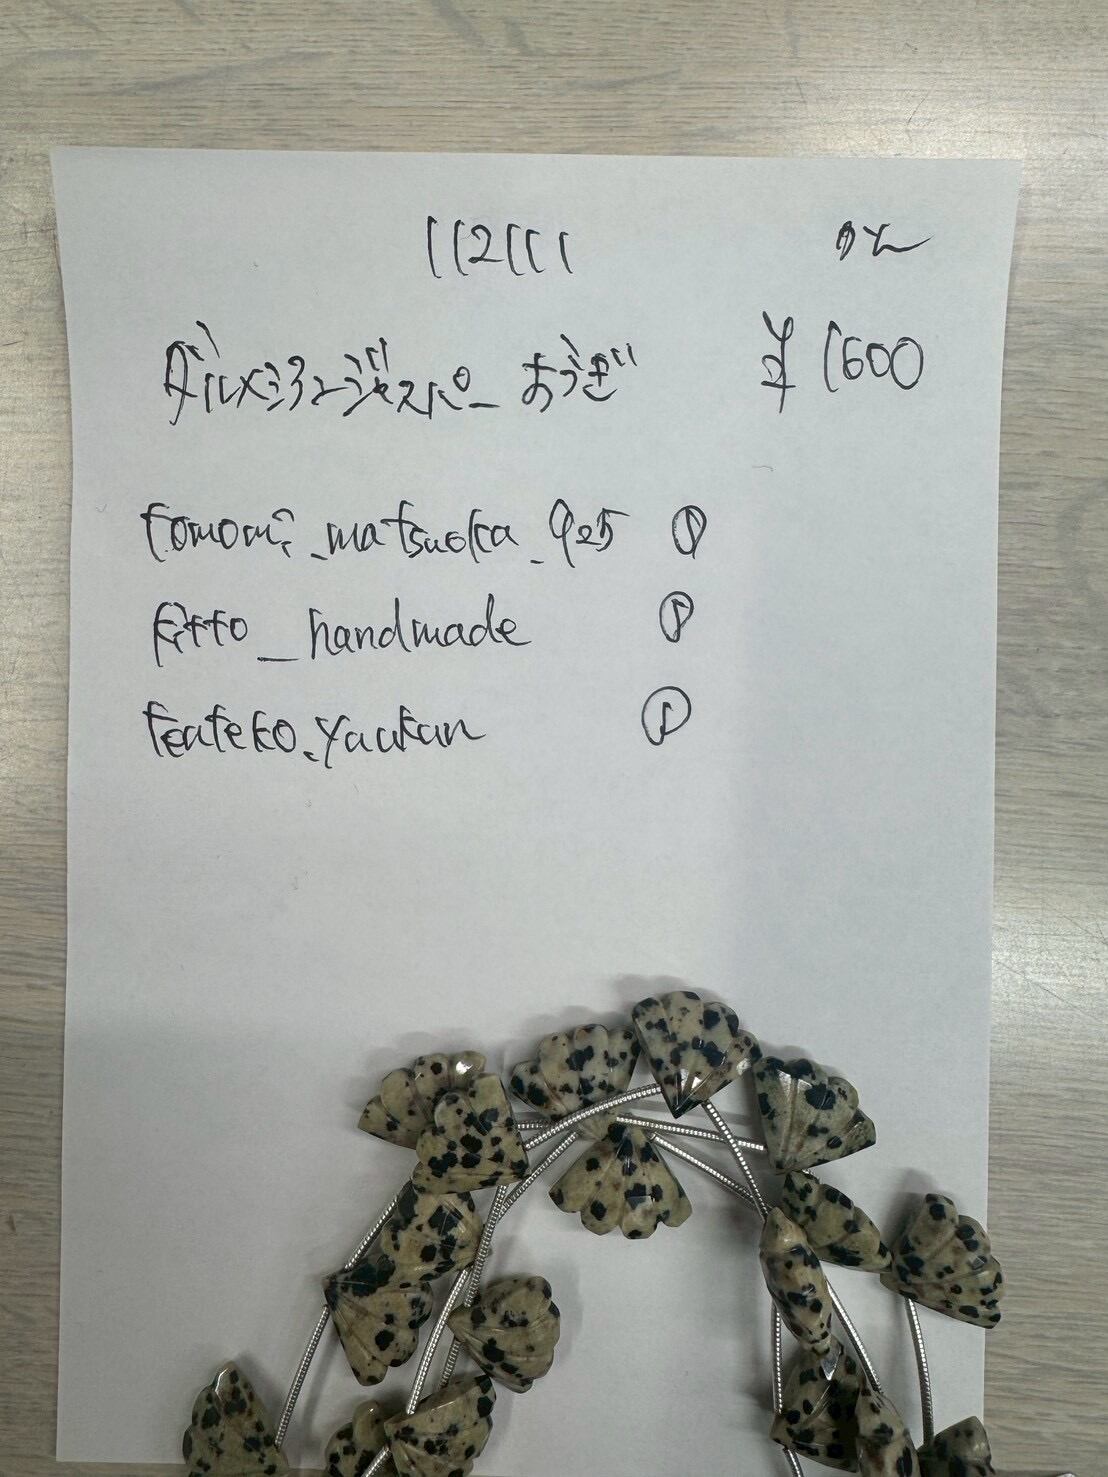 112111
ダルメシアンジャスパー おうぎ ¥1600
tomomi_matsuoka_925 ①
kitto_handmade ①
teateko.yaukan ①